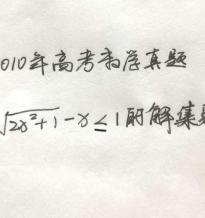 010年高考数学真题
√2x²+1-x≤1的解集